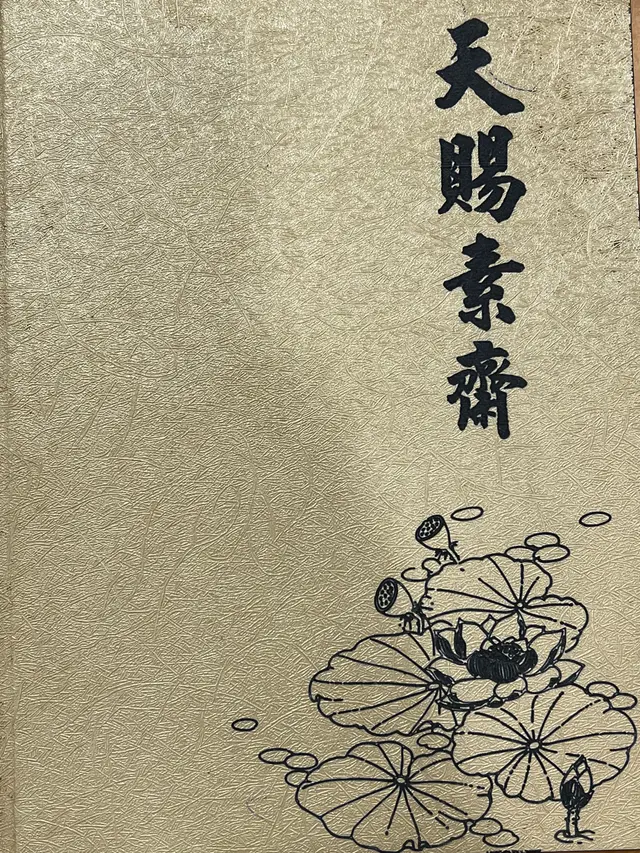 天賜素齋